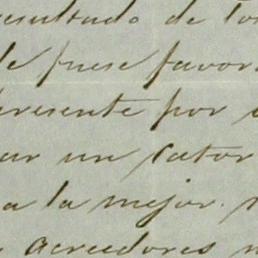 resultado de to
le fuese favor
presente por
ar un
a la mejor.
acreedores